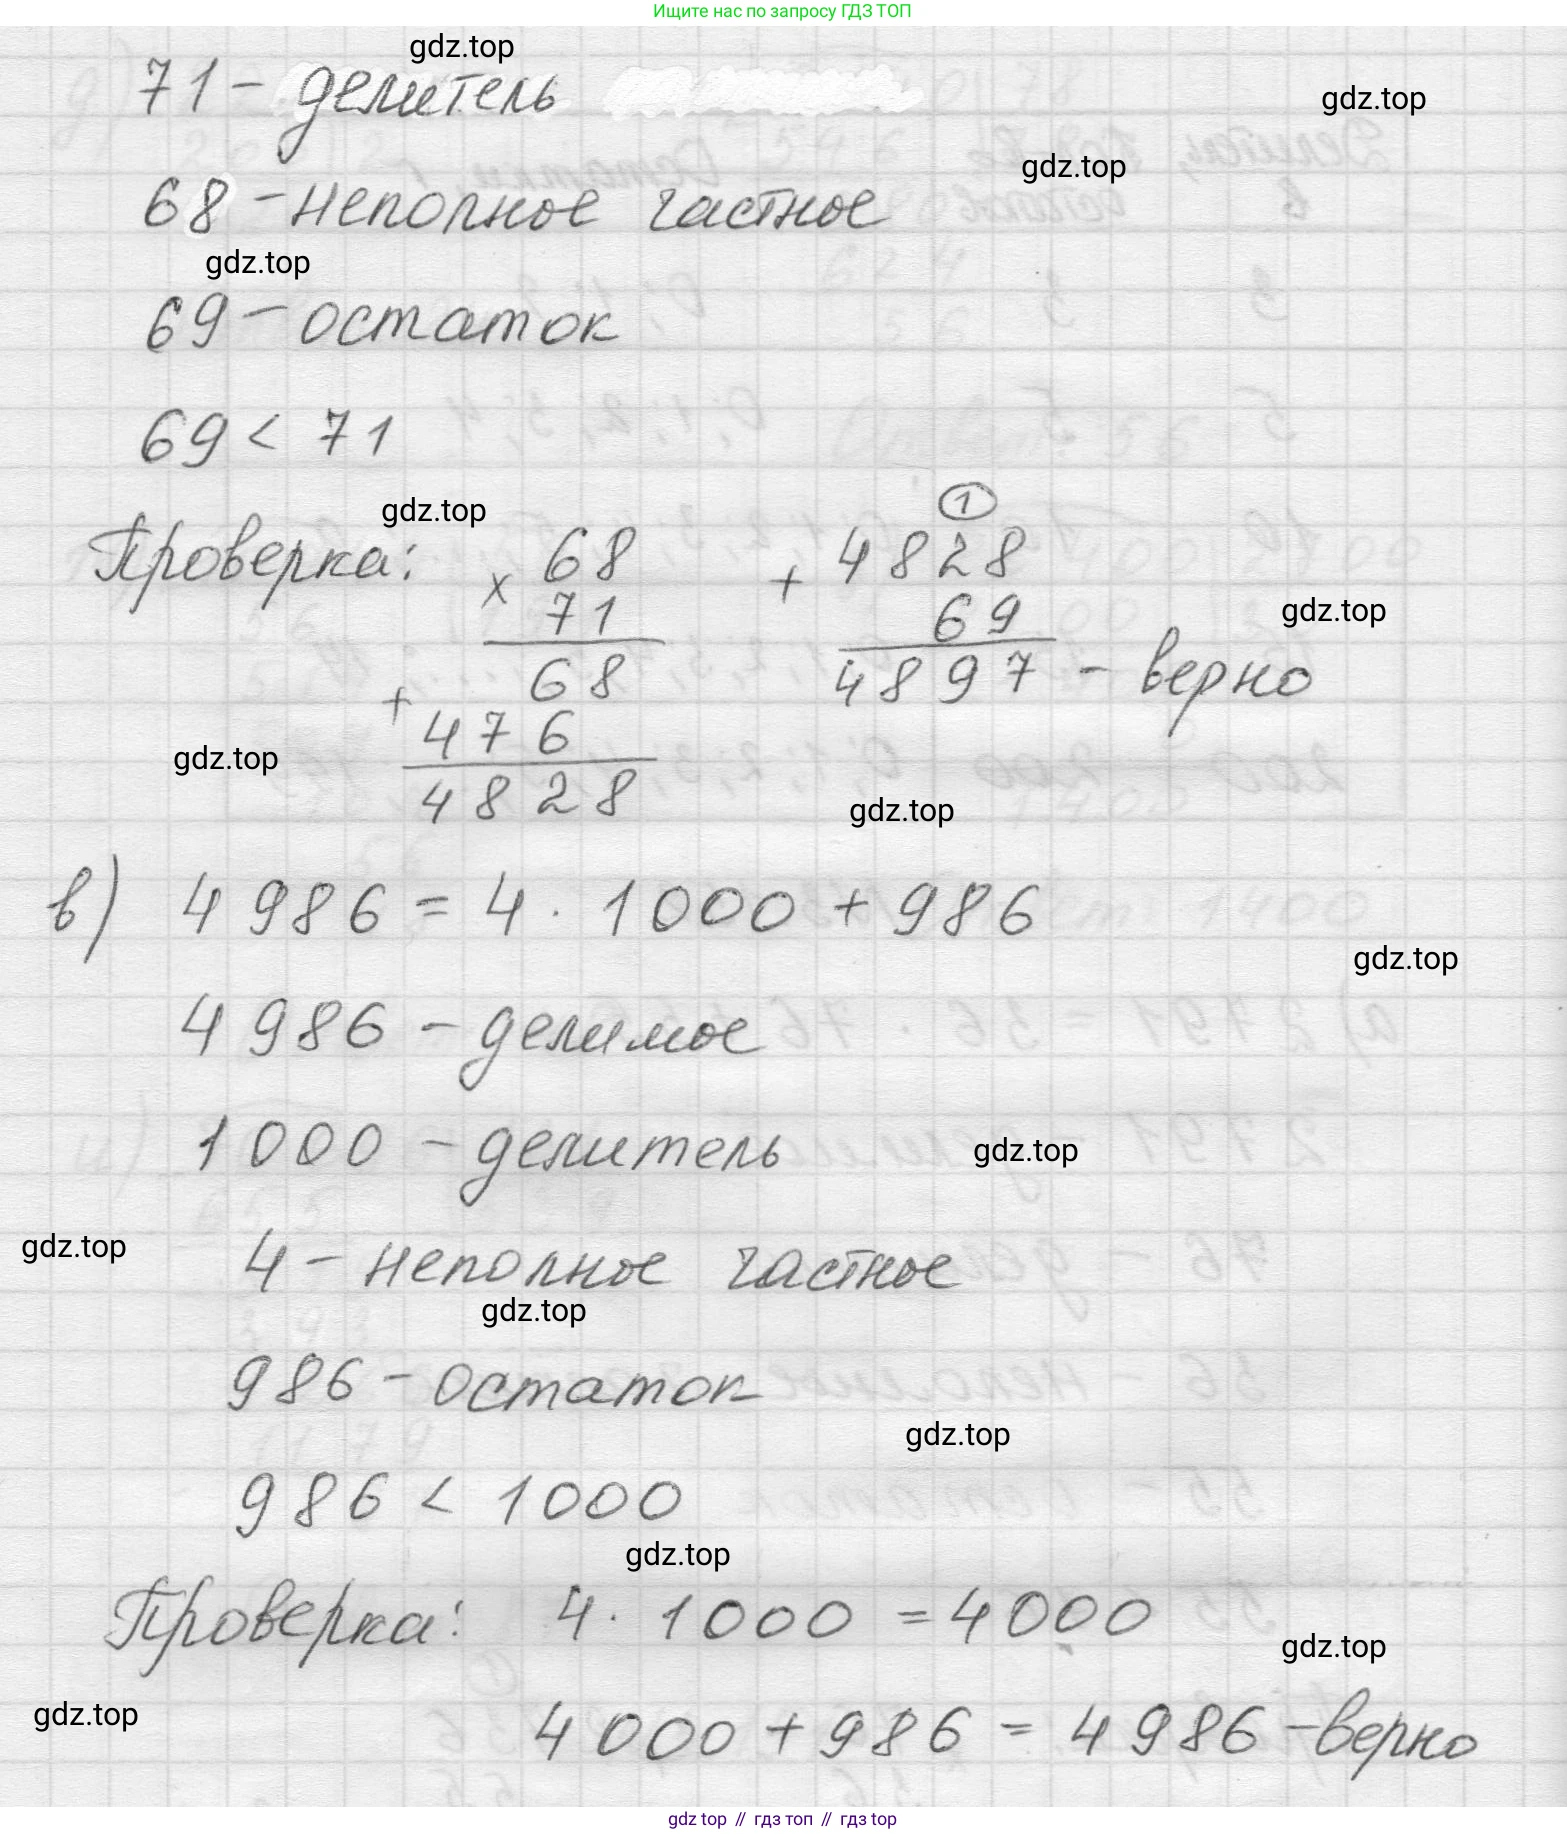 Ищите нас по запросу ГДЗ ТОП
gdz.top
71 - делитель
gdz.top
gdz.top
68 - неполное частное
gdz.top
69 - остаток
69 < 71
gdz.top
1
Проверка: × 68 + 4828
71 69
gdz.top
68 4897 - верно
+ 476
gdz.top
4828
gdz.top
в) 4986 = 4 · 1000 + 986
gdz.top
4986 - делимое
1000 - делитель
gdz.top
gdz.top
4 - неполное частное
gdz.top
986 - остаток
gdz.top
986 < 1000
gdz.top
Проверка: 4 · 1000 = 4000
gdz.top
gdz.top
4000 + 986 = 4986 - верно
gdz top // гдз топ // gdz top